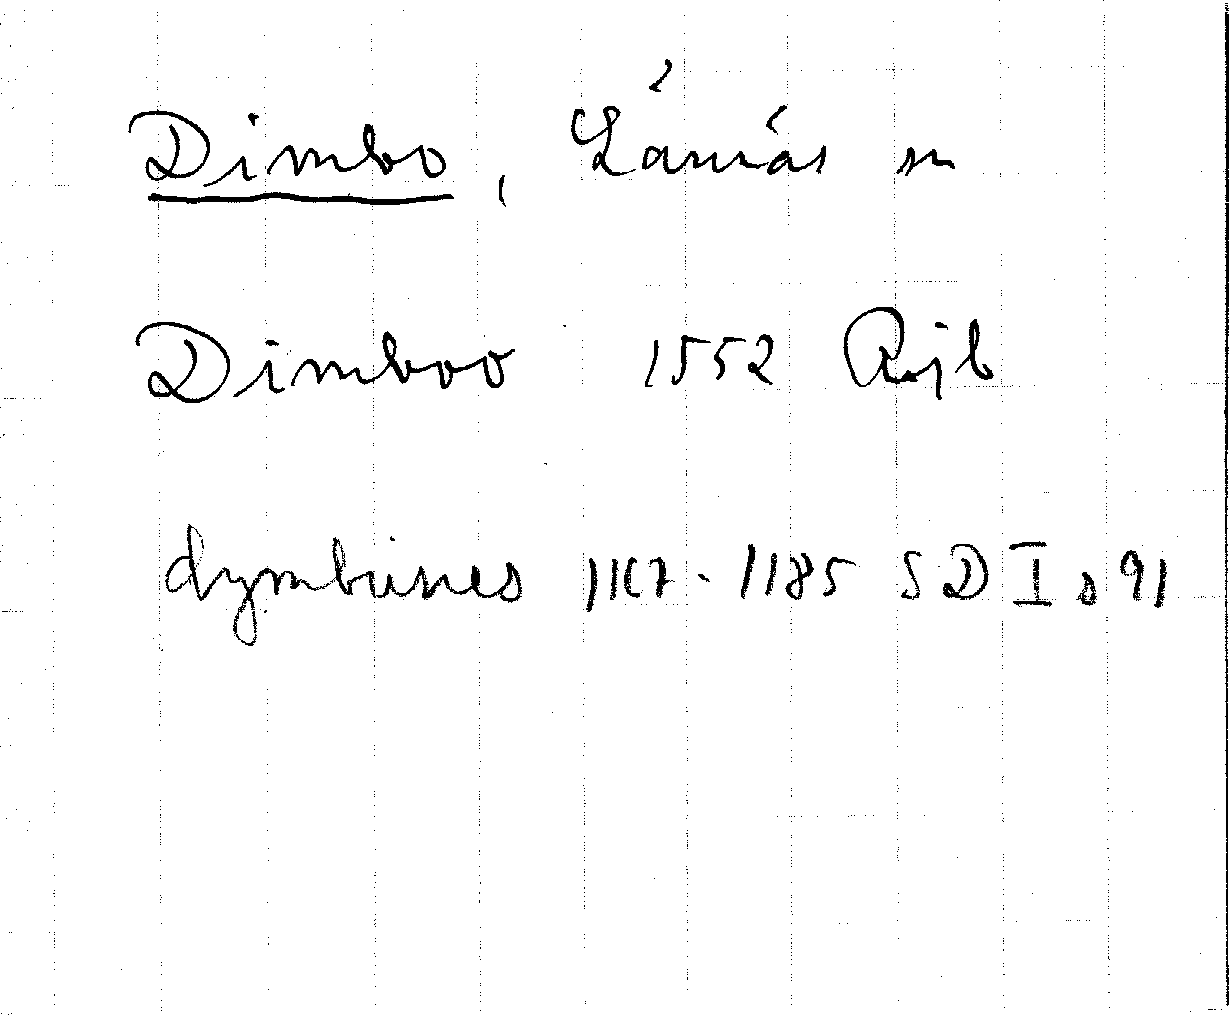 Dimbo, Lännäs sn
Dimboo 1552 Rjb
1167-1185 SD I s 91